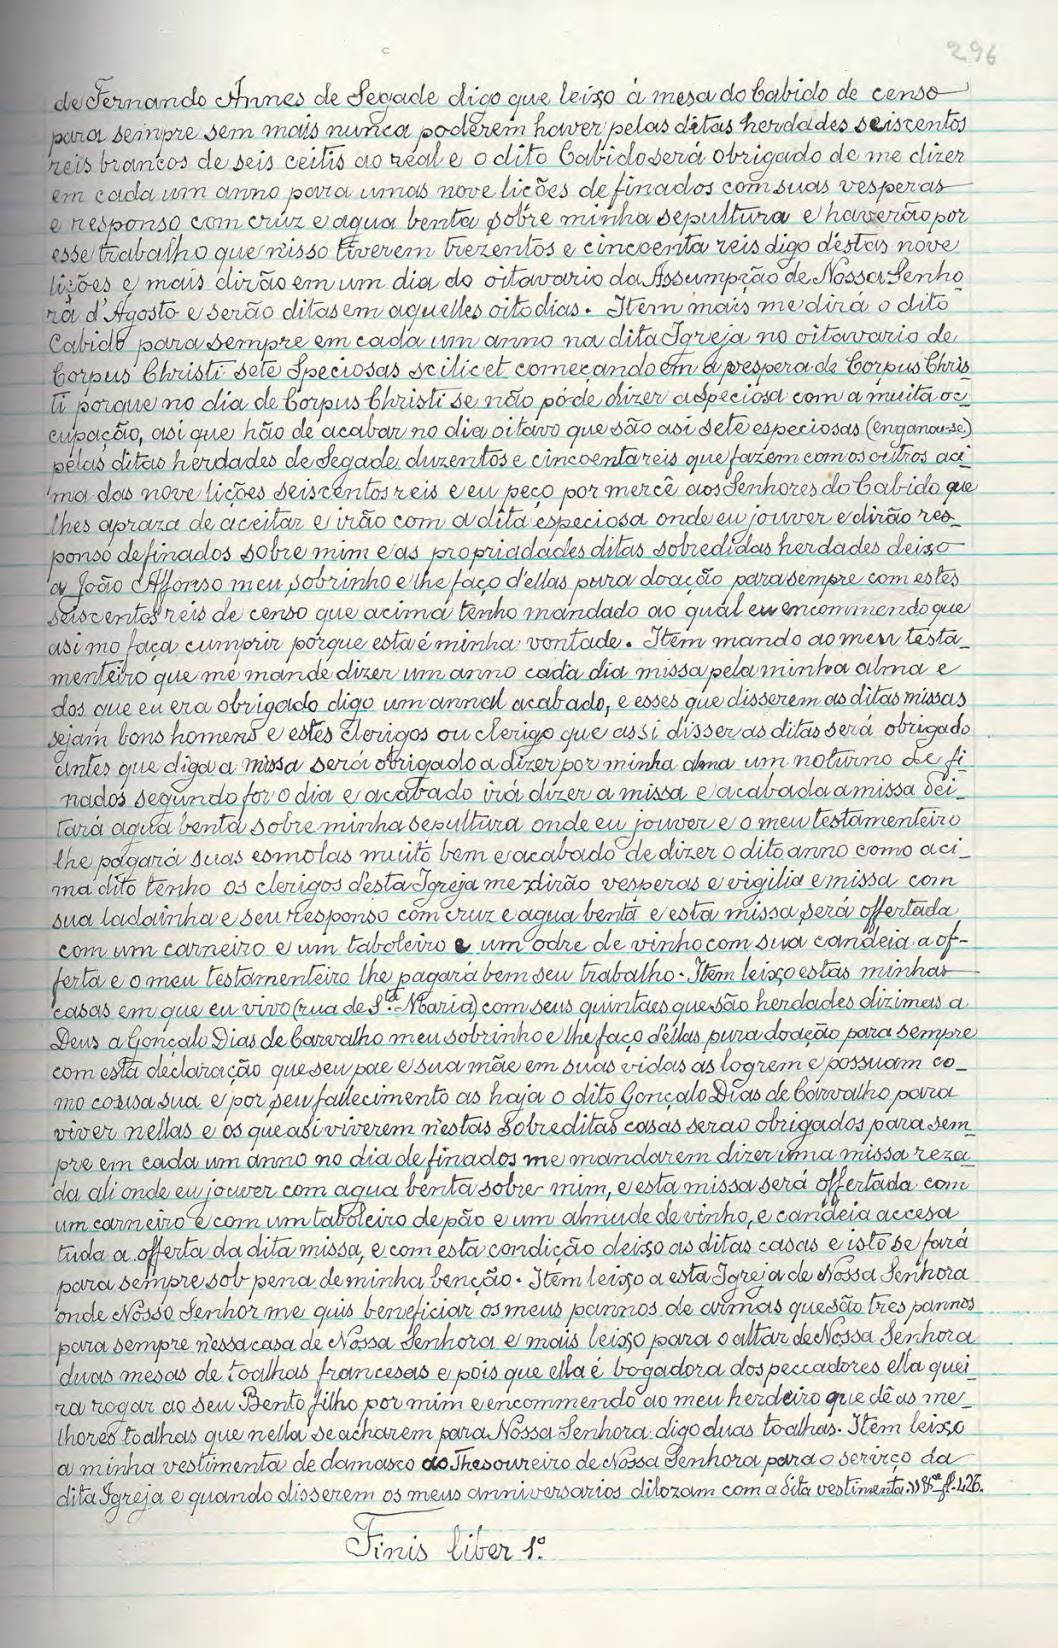 296
de Fernando Annes de Segade digo que leixo á mesa do Cabido de censo
para sempre sem mais nunca poderem haver pelas ditas herdades seiscentos
reis brancos de seis ceitis ao real e o dito Cabido será obrigado de me dizer
em cada um anno para umas nove lições de finados com suas vesperas
e responso com cruz e agua benta sobre minha sepultura e haverão por
esse trabalho que n'isso tiverem trezentos e cincoenta reis digo d'estas nove
lições e mais dirão em um dia do oitavario da Assumpção de Nossa Senho_
ra d'Agosto e serão ditas em aquelles oito dias. Item mais me dirá o dito
Cabido para sempre em cada um anno na dita Igreja no oitavario de
Corpus Christi sete Speciosas scilicet começando em a vespera de Corpus Chris_
ti porque no dia de Corpus Christi se não póde dizer a speciosa com a muita oc_
cupação, asi que hão de acabar no dia oitavo que são asi sete especiosas (enganou-se)
pelas ditas herdades de Segade duzentos e cincoenta reis que fazem com os outros aci_
ma das nove lições seiscentos reis e eu peço por mercê aos Senhores do Cabido que
lhes apraza de aceitar e irão com a dita especiosa onde eu jouver e dirão res_
ponso de finados sobre mim e as propriadades ditas sobredidas herdades deixo
a João Affonso meu sobrinho e lhe faço d'ellas pura doação para sempre com estes
seiscentos reis de censo que acima tenho mandado ao qual eu encommendo que
asi mo faça cumprir porque esta é minha vontade. Item mando ao meu testa_
menteiro que me mande dizer um anno cada dia missa pela minha alma e
dos que eu era obrigado digo um annal acabado, e esses que disserem as ditas missas
sejam bons homens e estes clerigos ou clerigo que assi disser as ditas será obrigado
antes que diga a missa será obrigado a dizer por minha alma um noturno de fi_
nados segundo for o dia e acabado irá dizer a missa e acabada a missa dei_
tará agua benta sobre minha sepultura onde eu jouver e o meu testamenteiro
lhe pagará suas esmolas muito bem e acabado de dizer o dito anno como aci_
ma dito tenho os clerigos d'esta Igreja me dirão vesperas e vigilia e missa com
sua ladainha e seu responso com cruz e agua benta e esta missa será offertada
com um carneiro e um taboleiro e um odre de vinho com sua candeia a of-
ferta e o meu testamenteiro lhe pagará bem seu trabalho. Item leixo estas minhas
casas em que eu vivo (rua de Sta Maria) com seus quintães que são herdades dizimas a
Deus a Gonçalo Dias de Carvalho meu sobrinho e lhe faço d'ellas pura doação para sempre
com esta declaração que seu pae e sua mãe em suas vidas as logrem e possuam co_
mo cousa sua e por seu fallecimento as haja o dito Gonçalo Dias de Carvalho para
viver nellas e os que asi viverem n'estas sobreditas casas serao obrigados para sem_
pre em cada um anno no dia de finados me mandarem dizer uma missa reza_
da ali onde eu jouver com agua benta sobre mim, e esta missa será offertada com
um carneiro e com um taboleiro de pão e um almude de vinho, e candeia accesa
tuda a offerta da dita missa, e com esta condição deixo as ditas casas e isto se fará
para sempre sob pena de minha benção. Item leixo a esta Igreja de Nossa Senhora
onde Nosso Senhor me quis beneficiar os meus pannos de armas que são tres pannos
para sempre n'essa casa de Nossa Senhora e mais leixo para o altar de Nossa Senhora
duas mesas de toalhas francesas e pois que ella é bogadora dos peccadores ella quei_
ra rogar ao seu Bento filho por mim e encommendo ao meu herdeiro que dê as me_
lhores toalhas que nella se acharem para Nossa Senhora digo duas toalhas. Item leixo
a minha vestimenta de damasco ao Thesoureiro de Nossa Senhora para o serviço da
dita Igreja e quando disserem os meus anniversarios dilozam com a dita vestimenta.» fl. 426.
Finis liber 1º.